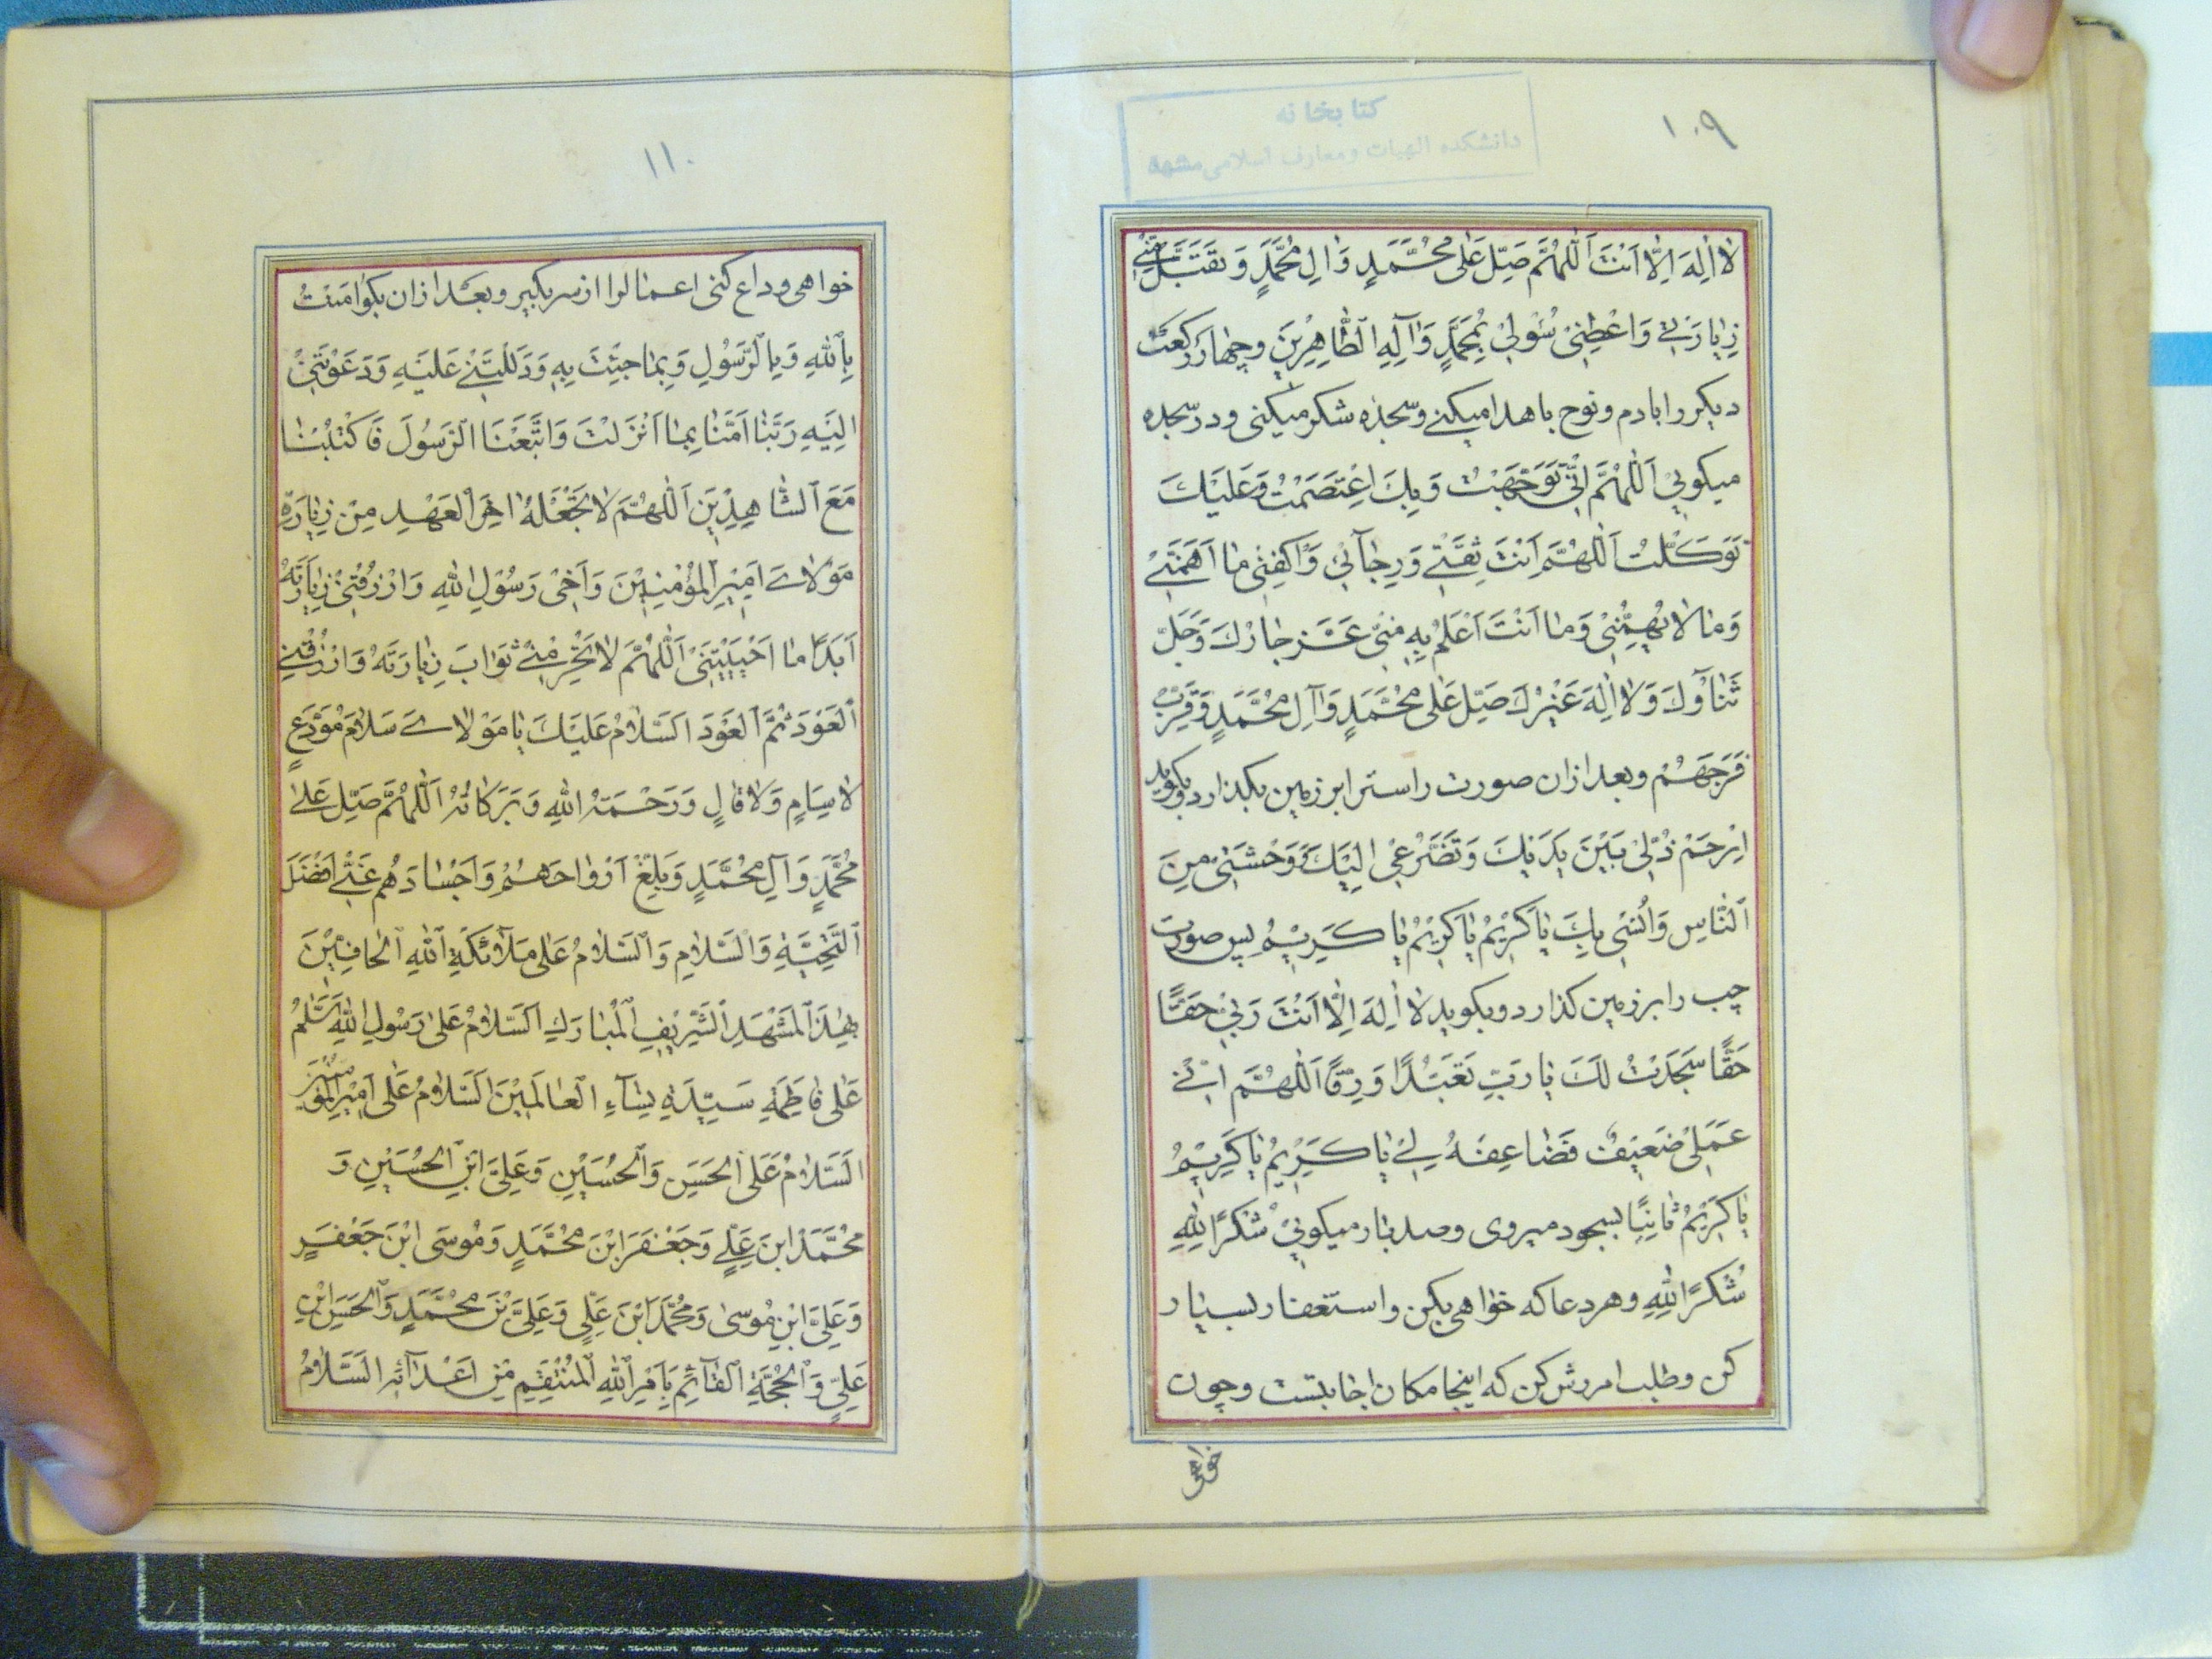 ۱۰۹
کتابخانه
دانشکده الهیات و معارف اسلامی مشهد
لا اِلهَ اِلّا اَنْتَ اَللّهُمَّ صَلِّ عَلی مُحَمَّدٍ وَالِ مُحَمَّدٍ وَ تَقَبَّلْ مِنّی
زِیارَتی وَاعْطِنی سُؤلی بِمُحَمَّدٍ وَآلِهِ الطّاهِرینَ و چهار رکعت
دیکر را بادم و نوح با هدا میکنی و سجده شکر میکنی و در سجده
میکوئی اَللّهُمَّ اِنّی تَوَجَّهْتُ وَ بِكَ اعْتَصَمْتُ وَعَلَیْكَ
تَوَکَّلْتُ اَللّهُمَّ اَنْتَ ثِقَتی وَ رِجآئی وَاکْفِنی ما اَهَمَّنی
وَ ما لا یُهِمُّنی وَ ما اَنْتَ اَعْلَمُ بِهِ مِنّی عَزَّ جارُكَ وَجَلَّ
ثَناؤُكَ وَ لا اِلهَ غَیْرُكَ صَلِّ عَلی مُحَمَّدٍ وَآلِ مُحَمَّدٍ وَقَرِّبْ
فَرَجَهُمْ و بعد از ان صورت راسترا بر زمین بکذارد و بکوید
اِرْحَمْ ذُلّی بَیْنَ یَدَیْكَ وَ تَضَرُّعی اِلَیْكَ وَ وَحْشَتی مِنَ
النّاسِ وَ اُنْسی بِكَ یا کَریمُ یا کَریمُ یا کَریمُ پس صورت
چپ را بر زمین کذارد و بکوید لا اِلهَ اِلّا اَنْتَ رَبّی حَقًّا
حَقًّا سَجَدْتُ لَكَ یا رَبِّ تَعَبُّدًا وَ رِقًّا اَللّهُمَّ اِنَّ
عَمَلی ضَعیفٌ فَضاعِفْهُ لی یا کَریمُ یا کَریمُ
یا کَریمُ ثانیًا بسجود میروی و صد بار میکوئی شُکْرًا لِلّهِ
شُکْرًا لِلّهِ و هر دعا که خواهی بکن و استغفار بسیار
کن و طلب امرزش کن که اینجا مکان اجابتست و چون
خواهی
۱۱۰
خواهی وداع کنی اعمالرا از سر بکیر و بعد از ان بکو امَنْتُ
بِاللّهِ وَ بِالرَّسُولِ وَ بِما جِئْتَ بِهِ وَ دَلَلْتَنی عَلَیْهِ وَ دَعَوْتَنی
اِلَیْهِ رَبَّنا امَنّا بِما اَنْزَلْتَ وَاتَّبَعْنَا الرَّسُولَ فَاکْتُبْنا
مَعَ الشّاهِدینَ اَللّهُمَّ لا تَجْعَلْهُ اخِرَ الْعَهْدِ مِنْ زِیارَةِ
مَوْلایَ اَمیرِ الْمُؤْمِنینَ وَ اَخی رَسُولِ اللّهِ وَ ارْزُقْنی زِیارَتَهُ
اَبَدًا ما اَحْیَیْتَنی اَللّهُمَّ لا تَحْرِمْنی ثَوابَ زِیارَتِهِ وَ ارْزُقْنی
الْعَوْدَ ثُمَّ الْعَوْدَ اَلسَّلامُ عَلَیْكَ یا مَوْلایَ سَلامَ مُوَدِّعٍ
لا سَئِمٍ وَ لا قالٍ وَ رَحْمَةُ اللّهِ وَ بَرَکاتُهُ اَللّهُمَّ صَلِّ عَلی
مُحَمَّدٍ وَ آلِ مُحَمَّدٍ وَ بَلِّغْ اَرْواحَهُمْ وَ اَجْسادَهُمْ عَنّی اَفْضَلَ
التَّحِیَّةِ وَالسَّلامِ وَ السَّلامُ عَلی مَلآئِکَةِ اللّهِ الْحافّینَ
بِهذَا الْمَشْهَدِ الشَّریفِ الْمُبارَكِ اَلسَّلامُ عَلی رَسُولِ اللّهِ اَلسَّلامُ
عَلی فاطِمَةِ سَیِّدَةِ نِسآءِ الْعالَمینَ اَلسَّلامُ عَلی اَمیرِ الْمُؤْمِنینَ
اَلسَّلامُ عَلَی الْحَسَنِ وَ الْحُسَیْنِ وَ عَلِیِّ ابْنِ الْحُسَیْنِ وَ
مُحَمَّدِ ابْنَ عَلِیٍّ وَ جَعْفَرَ ابْنَ مُحَمَّدٍ وَ مُوسَی ابْنَ جَعْفَرٍ
وَ عَلِیِّ ابْنِ مُوسی وَ مُحَمَّدَ ابْنَ عَلِیٍّ وَ عَلِیِّ بْنَ مُحَمَّدٍ وَ الْحَسَنِ ابْنِ
عَلِیٍّ وَ الْحُجَّةِ الْقآئِمِ بِاَمْرِ اللّهِ الْمُنْتَقِمِ مِنْ اَعْدآئِهِ السَّلامُ